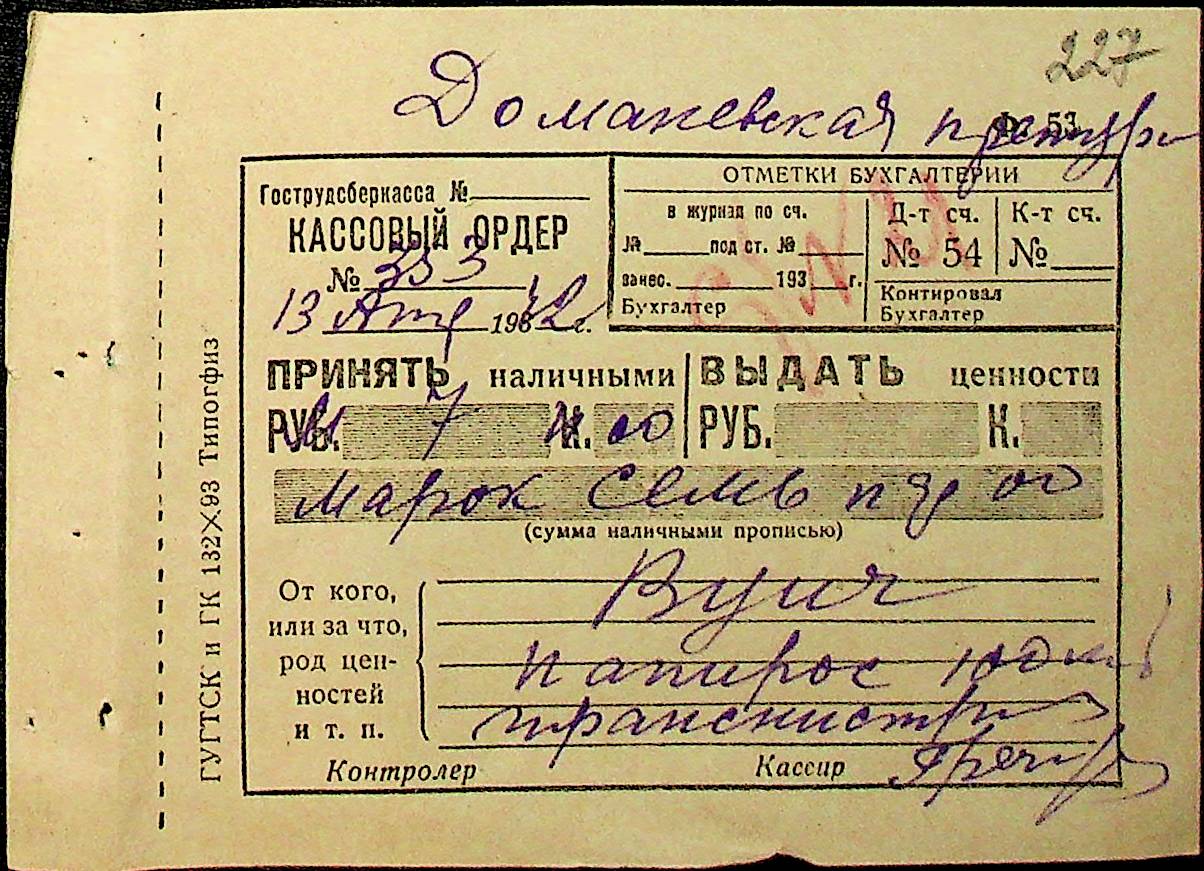 227
Доманевская претура
Ф. 53
Гострудсберкасса №
КАССОВЫЙ ОРДЕР
№ 353
13 Апр 1942 г.
ОТМЕТКИ БУХГАЛТЕРИИ
в журнал по сч.
№ под ст. №
занес. 193 г.
Бухгалтер
Д-т сч.
№ 54
Контировал
Бухгалтер
К-т сч.
№
ПРИНЯТЬ наличными
РУБ. 7 К. 00
ВЫДАТЬ ценности
РУБ. К.
Марок семь пф 00
(сумма наличными прописью)
От кого,
или за что,
род цен-
ностей
и т. п.
Вуич
папирос
Контролер
Кассир
ГУГТСК и ГК 132×93 Типогфиз